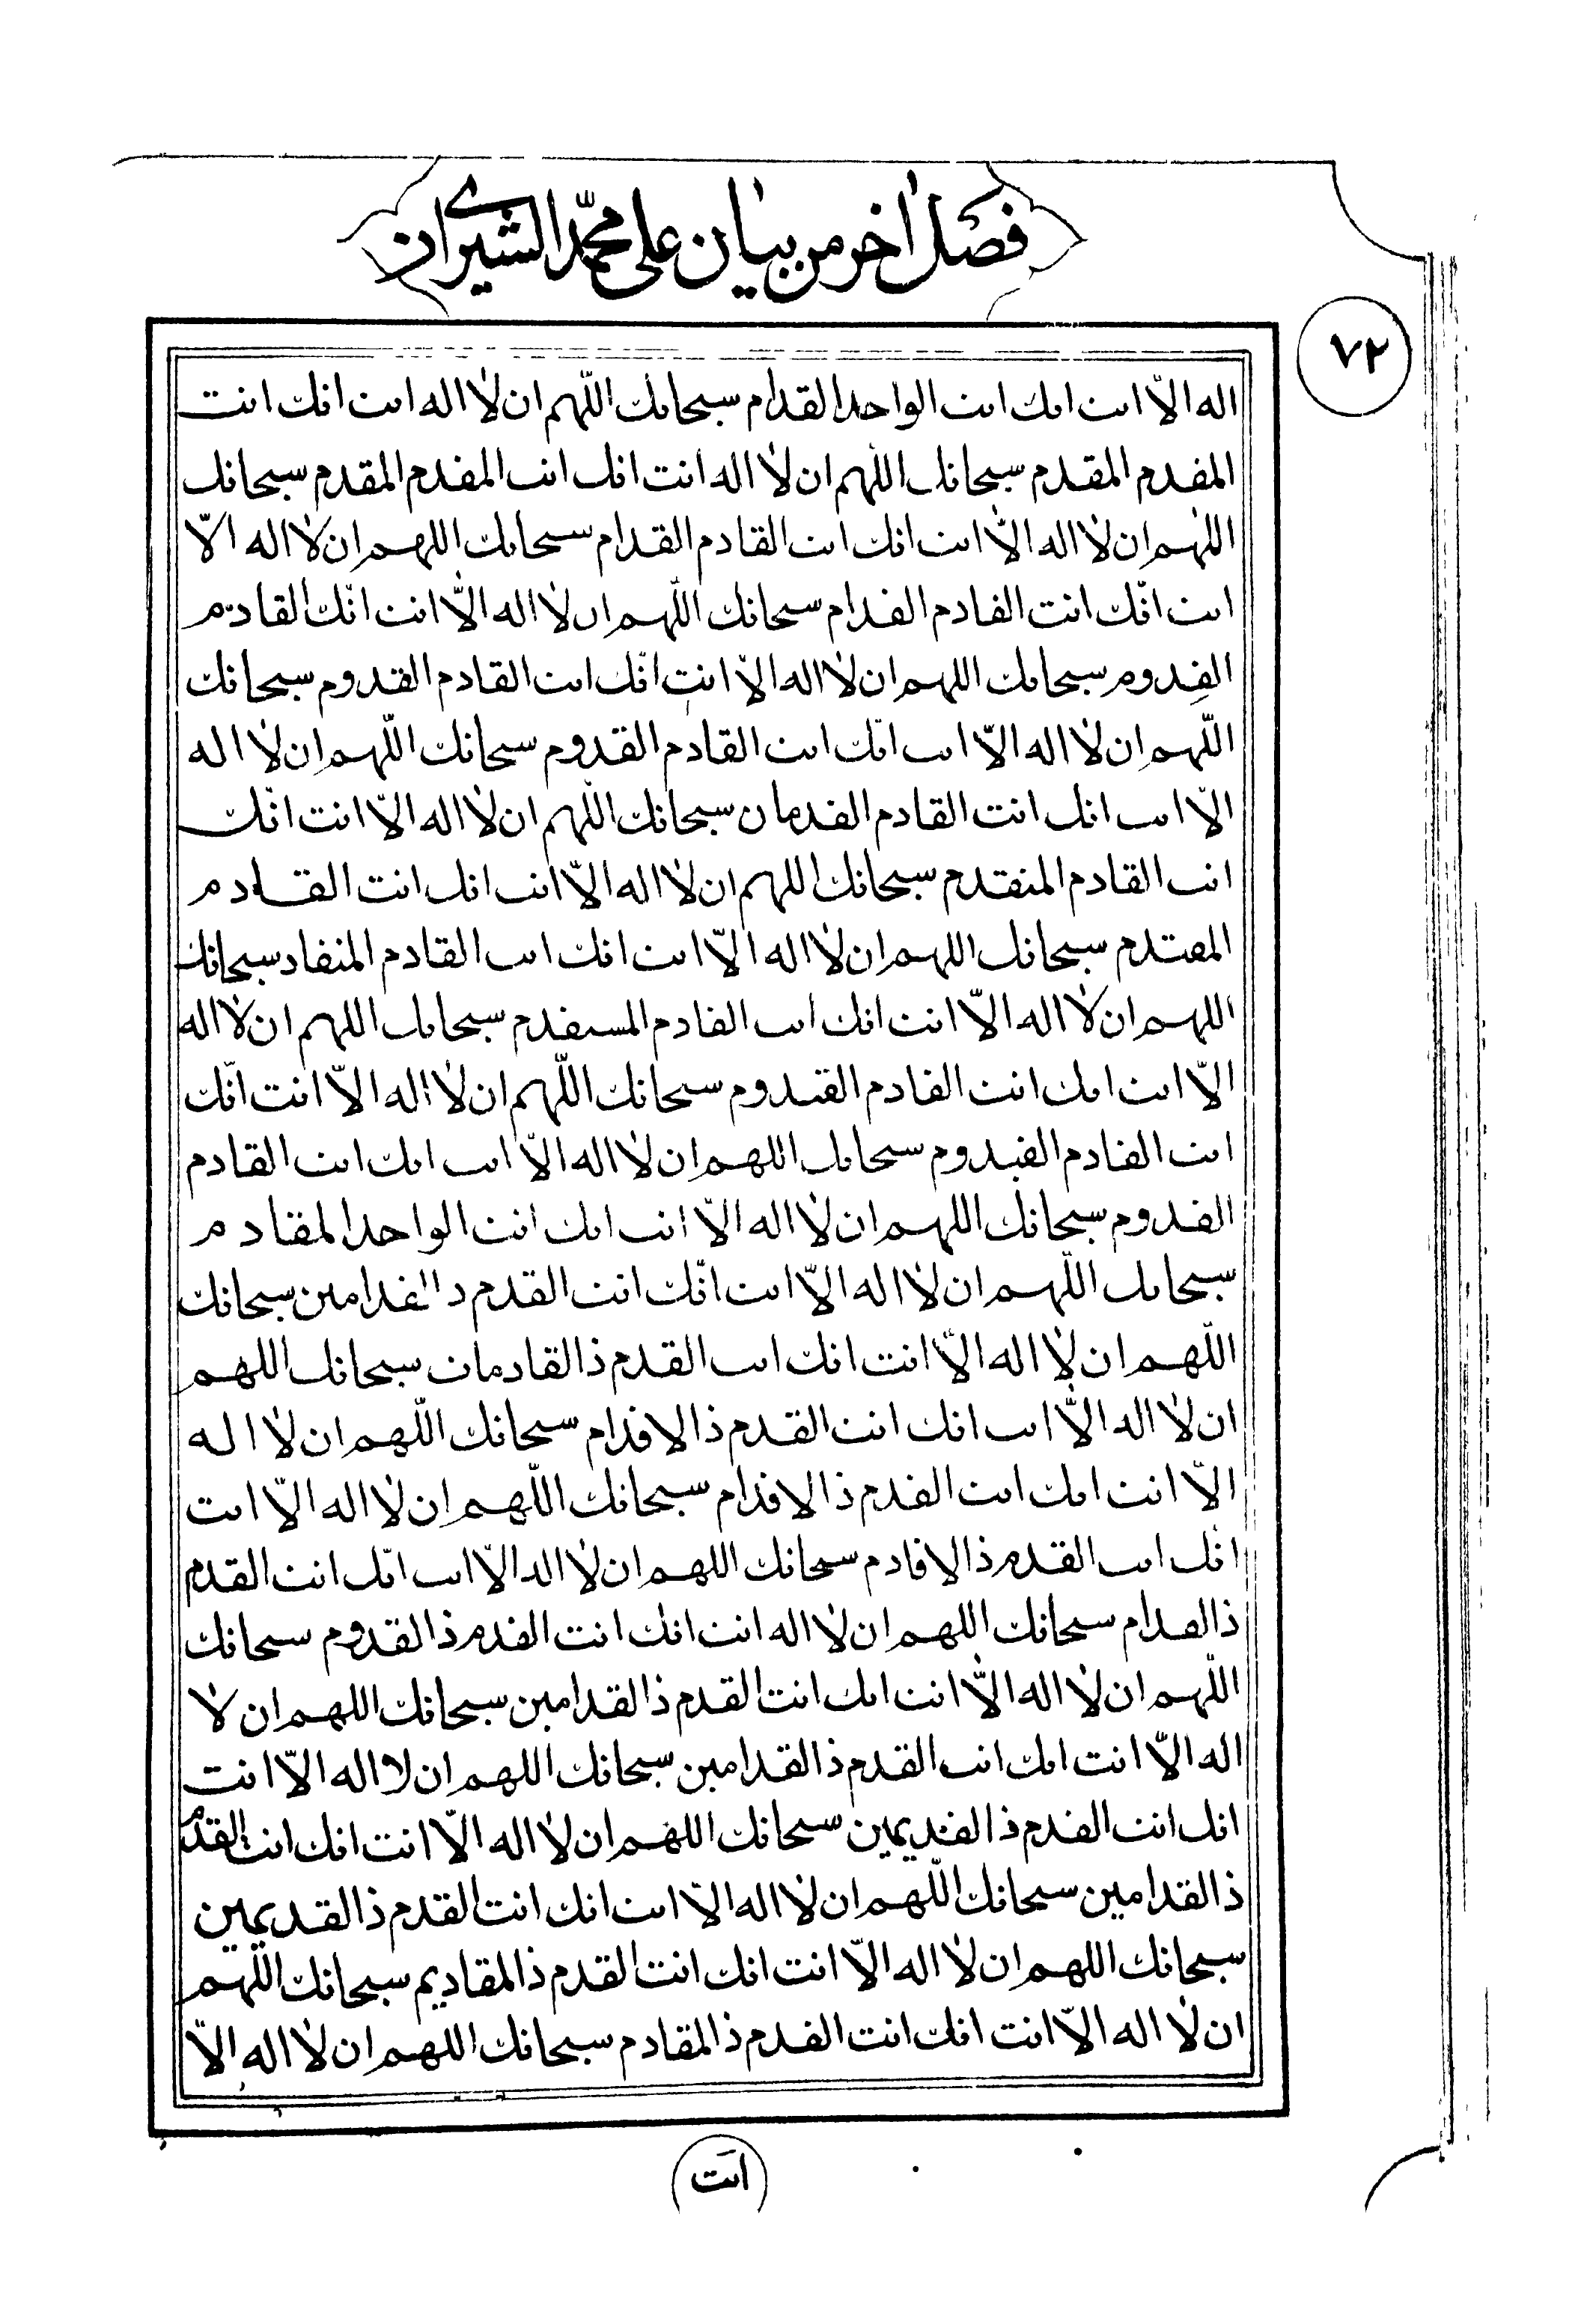 فصل اخر من بيان على محمّد الشيرازى
٧٢
اله الّا انت انك انت الواحد القدام سبحانك اللّهم ان لا اله انت انك انت
المقدم المقدم سبحانك اللهم ان لا اله أنت انك انت المقدم المقدم سبحانك
اللهم ان لا اله الّا انت انك انت القادم القدام سبحانك اللهم ان لا اله الّا
انت انّك انت القادم القدام سبحانك اللّهم ان لا اله الّا انت انّك القاديم
القدوم سبحانك اللهم ان لا اله الّا انت انّك انت القادم القدوم سبحانك
اللّهم ان لا اله الّا انت انّك انت القادم القدوم سبحانك اللّهم ان لا اله
الّا انت انك انت القادم القدمان سبحانك اللّهم ان لا اله الّا انت انّك
انت القادم المنقدم سبحانك اللهم ان لا اله الّا انت انك انت القادم
المقتدم سبحانك اللهم ان لا اله الّا انت انك انت القادم المنقاد سبحانك
اللهم ان لا اله الّا انت انك انت القادم المستقدم سبحانك اللهم ان لا اله
الّا انت انك انت القادم القيدوم سبحانك اللّهم ان لا اله الّا انت انّك
انت القادم القيدوم سبحانك اللهم ان لا اله الّا انت انك انت القادم
القدوم سبحانك اللهم ان لا اله الّا انت انك انت الواحد المقادم
سبحانك اللّهم ان لا اله الّا انت انّك انت القدم ذ القدامين سبحانك
اللّهم ان لا اله الّا انت انك انت القدم ذ القادمان سبحانك اللهم
ان لا اله الّا انت انك انت القدم ذ الاقدام سبحانك اللّهم ان لا اله
الّا انت انك انت القدم ذ الاقدام سبحانك اللّهم ان لا اله الّا انت
انك انت القدم ذ الاقادم سبحانك اللهم ان لا اله الّا انت انّك انت القدم
ذ القدام سبحانك اللهم ان لا اله انت انك انت القدم ذ القدوم سبحانك
اللّهم ان لا اله الّا انت انك انت القدم ذ القدامين سبحانك اللهم ان لا
اله الّا انت انك انت القدم ذ القدامين سبحانك اللهم ان لا اله الّا انت
انك انت القدم ذ القديمين سبحانك اللهم ان لا اله الّا انت انك انت القدم
ذ القدامين سبحانك اللّهم ان لا اله الّا انت انك انت القدم ذ القديمين
سبحانك اللهم ان لا اله الّا انت انك انت القدم ذ المقاديم سبحانك اللّهم
ان لا اله الّا انت انك انت القدم ذ المقادم سبحانك اللهم ان لا اله الّا
انت